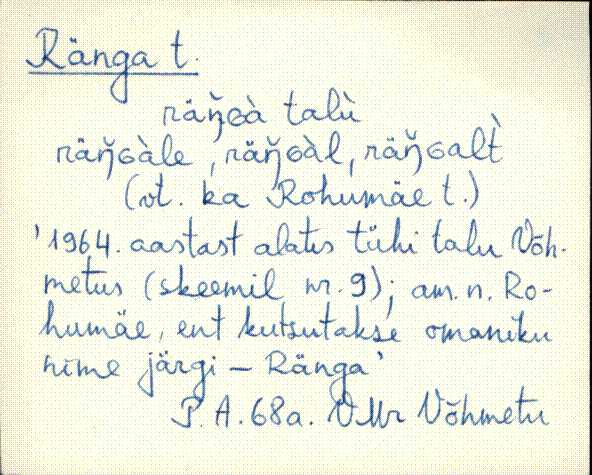 Ränga t.
räŋ̆ɢà talù
räŋ̆ɢàle, räŋ̆ɢàl, räŋ̆ɢalt̀
(vt. ka Rohumäe t.)
'1964. aastast alates tühi talu Võh-
metus (skeemil nr. 9); am. n. Ro-
humäe, ent kutsutakse omaniku
nime järgi – Ränga'
P. A. 68a. VMr Võhmetu